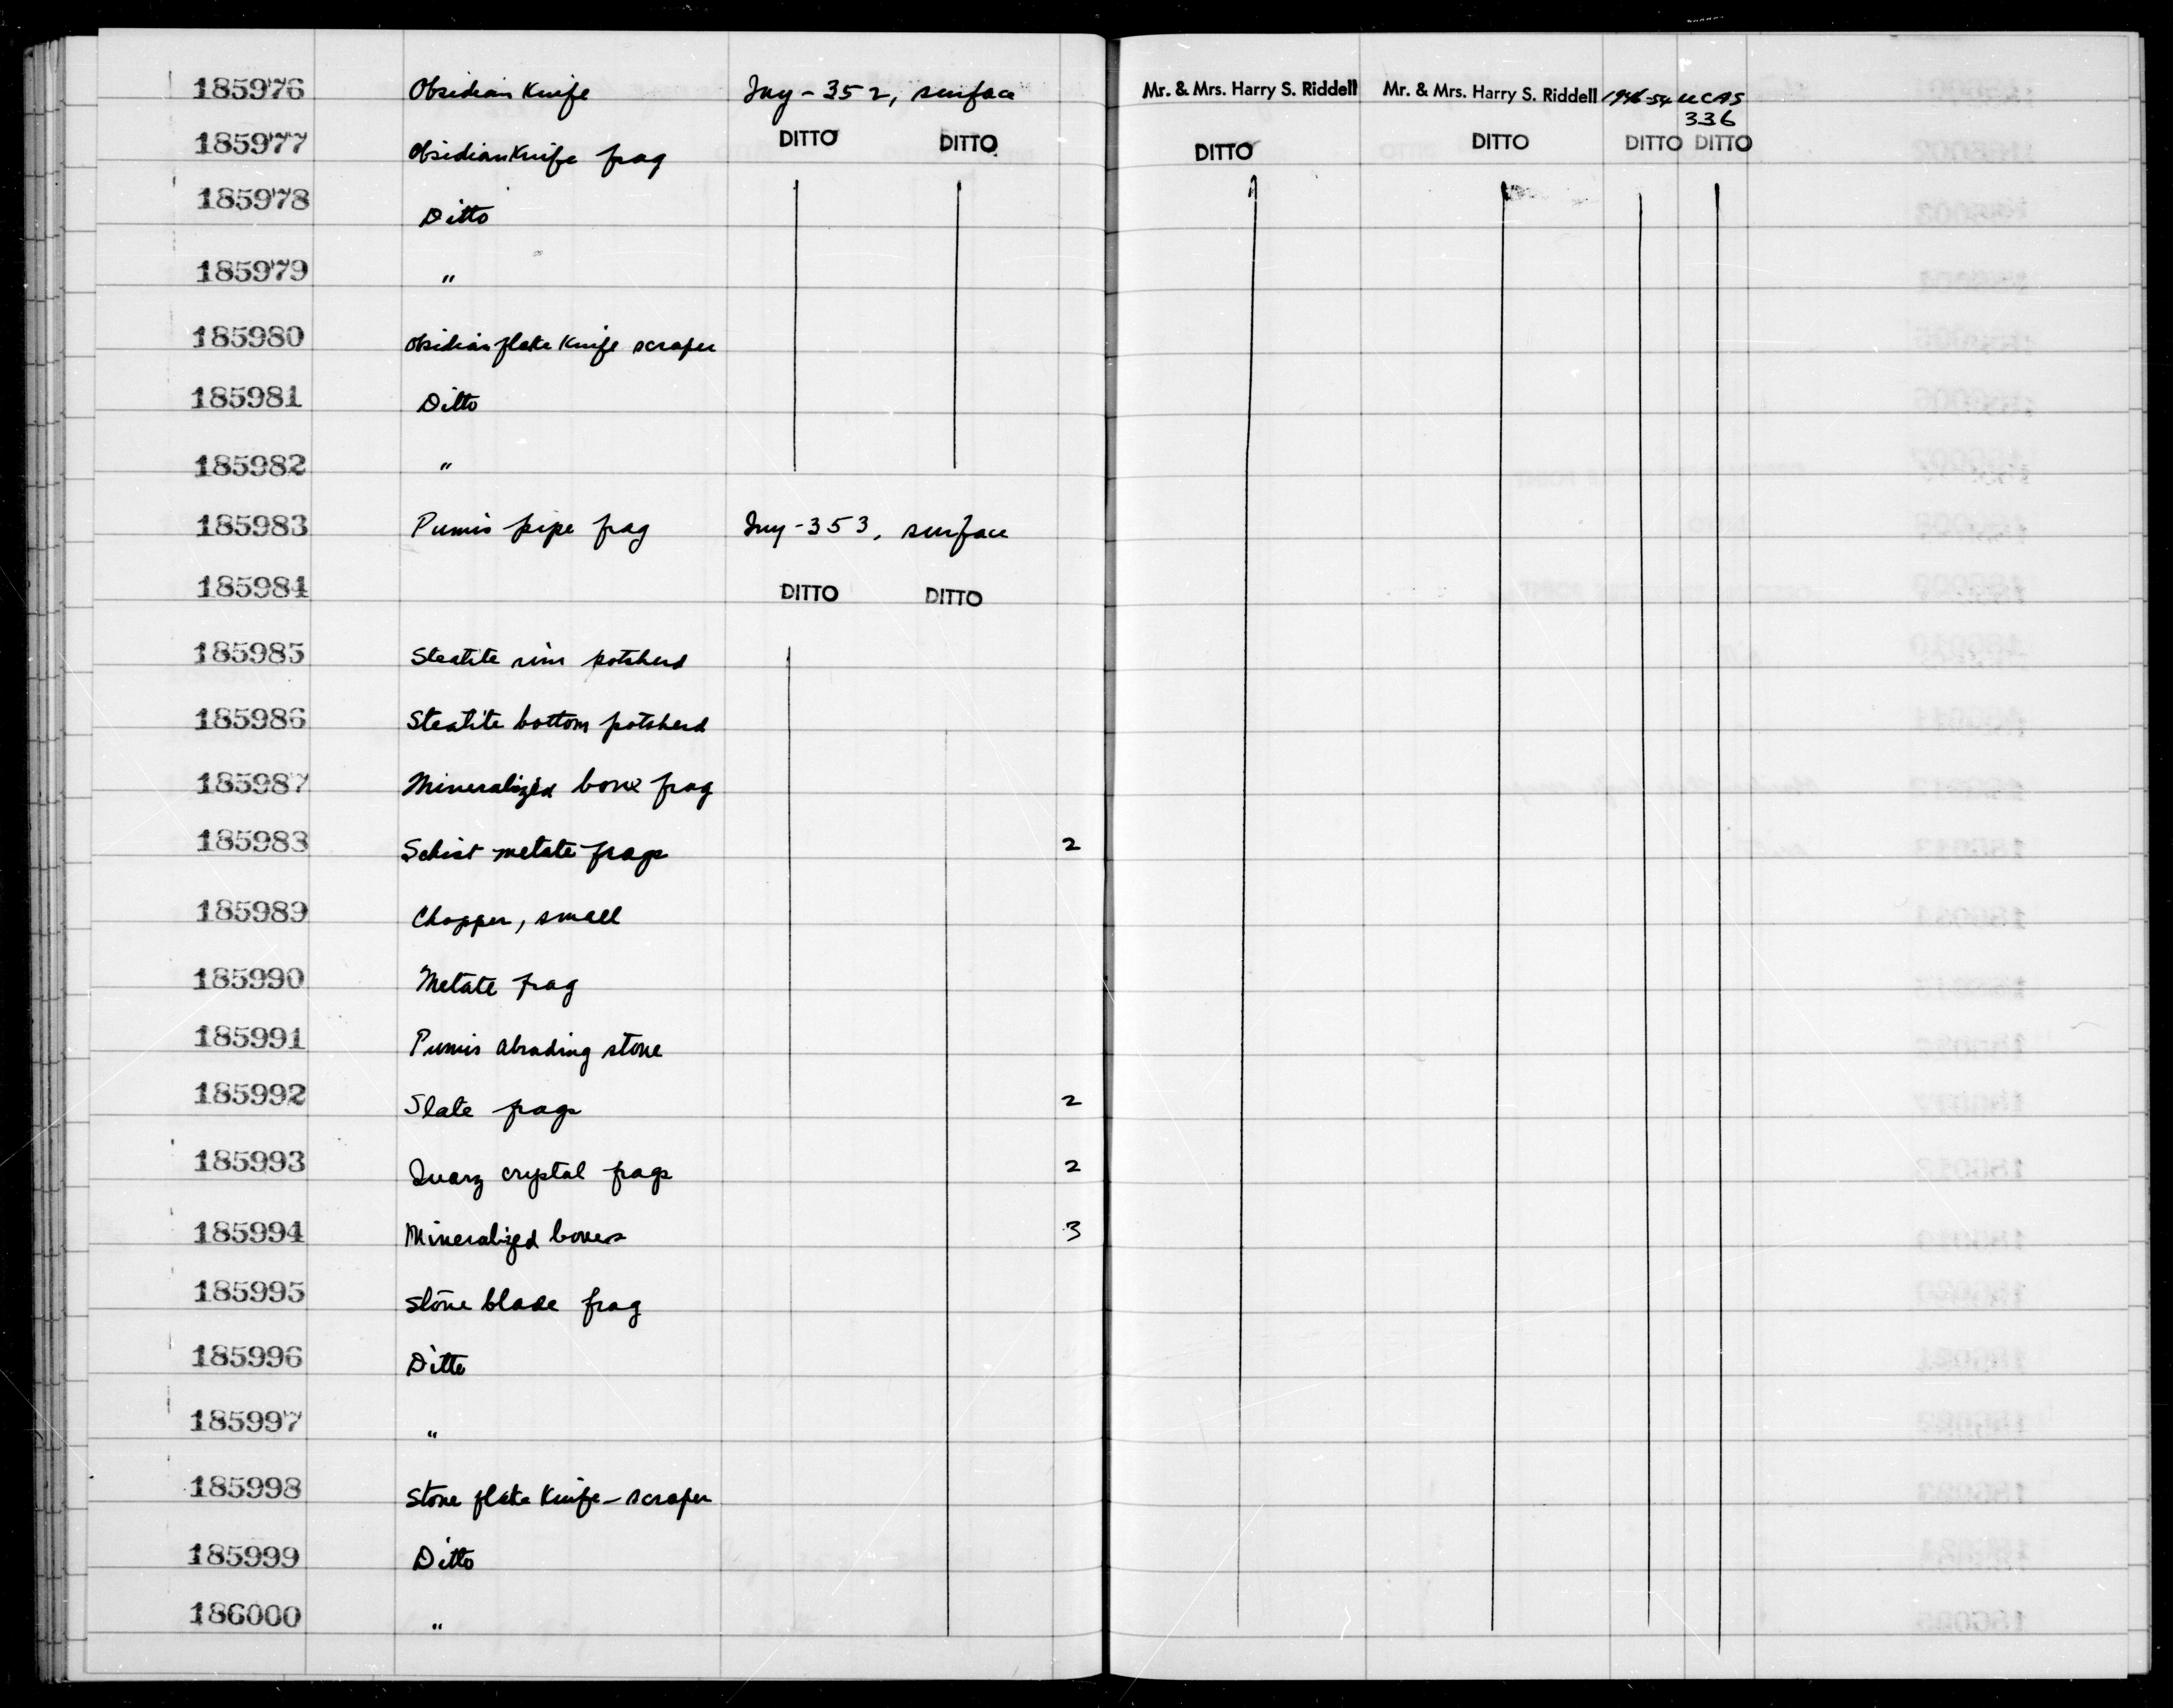 185976 Obsidian Knife Iny-352, surface Mr. & Mrs. Harry S. Riddell Mr. & Mrs. Harry S. Riddell 1946-54 UCAS
336
185977 Obsidian Knife frag DITTO DITTO DITTO DITTO DITTO DITTO
185978 Ditto
185979 "
185980 Obsidian flake Knife scraper
185981 Ditto
185982 "
185983 Pumis pipe frag Iny-353, surface
185984 DITTO DITTO
185985 Steatite rim potsherd
185986 Steatite bottom potsherd
185987 Mineralized bone frag
185988 Schist metate frags 2
185989 Chopper, small
185990 Metate frag
185991 Pumis abrading stone
185992 Slate frags 2
185993 Quarz crystal frags 2
185994 Mineralized bones 3
185995 Stone blade frag
185996 Ditto
185997 "
185998 Stone flake Knife-scraper
185999 Ditto
186000 "